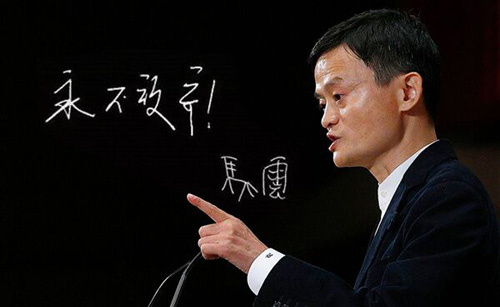 永不放弃!
馬雲